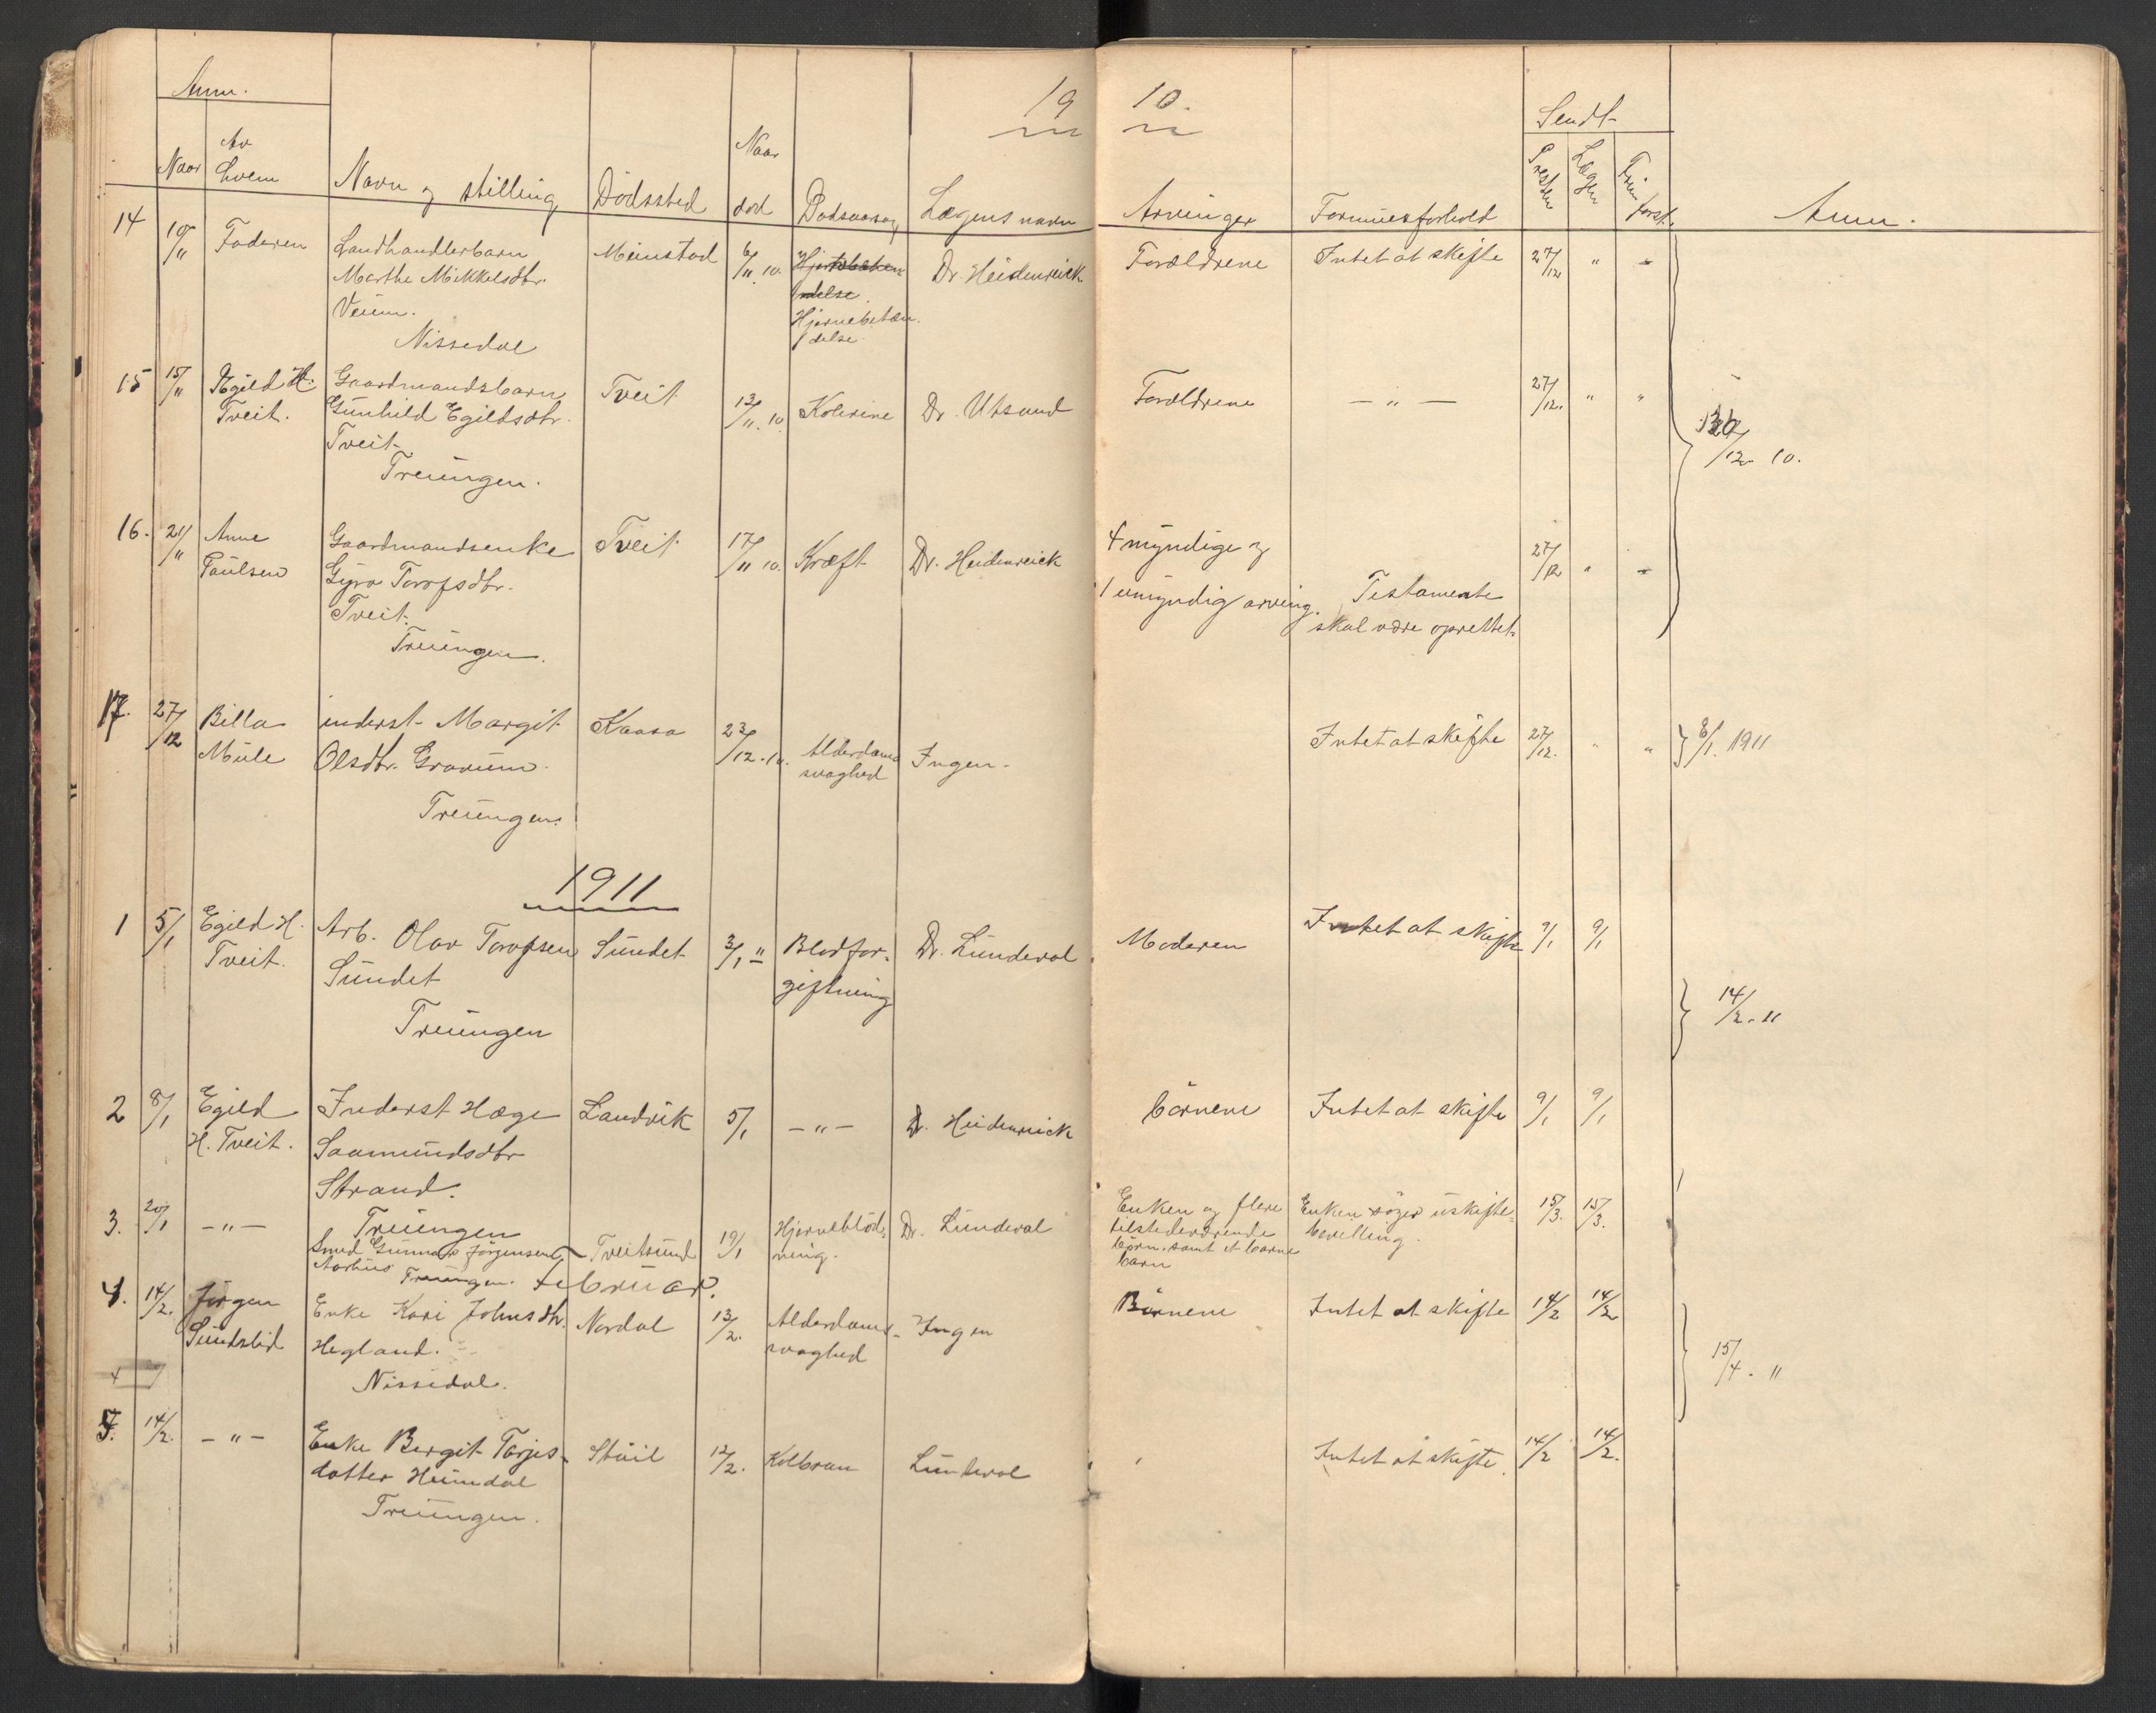 Anm. 19 10. Sendt
Naar Av hvem Navn og stilling Dödssted Naar död Dödsaarsag Lægens navn Arvinger Formuesforhold Presten Lægen Anm.
14 10/11 Faderen Landhandlerbarn Meinstad 6/11 10. Dr. Heidenreick Forældrene Intet at skifte 27/12 " "
Marthe Mikkelsdtr.
Veum. Hjernebetæn
Nissedal delse
15 15/11 Egild H. Gaardmandsbarn Tveit 13/11. 10. Kolerine Dr. Utsund Forældrene — " — 27/12. " "
Tveit. Gunhild Egildsdtr.
Tveit
Treungen. /12. 10.
16. 21/11 Anne Gaardmandsenke Tveit 17/11 10. Kræft Dr. Heidenreick 4 myndige og 27/12 " "
Paulsen Gyro Torofsdtr. 1 umyndig arving. Testamente
Tveit. skal være oprettet.
Treungen.
17. 27/12 Billa inderst Margit Kaasa 23/12. 10. Alderdoms Ingen. Intet at skifte 27/12. " " 8/1. 1911
Mule Olsdtr. Gravum. svaghed
Treungen.
1911
1 5/1 Egild H. Arb. Olav Torofsen Sundet 3/1 " Blodfor- Dr. Lunderol Moderen Intet at skifte 9/1 9/1
Tveit. Sundet giftning
Treungen 14/2. 11
2 8/1 Egild Inderst Hæge Landvik 5/1 — " — Dr. Heidenreick börnene Intet at skifte 9/1 9/1
H. Tveit. Saamundsdtr
Strand.
Treungen
3. 20/1 — " — Smed Gunnar Jörgensen Tveitsund 19/1 Hjerneblöd- Dr. Lunderol Enken og flere Enken söger uskifte- 15/3. 15/3.
Aarhus Treungen. ning. tilstedeværende bevilling.
börn. samt et barne
barn
Februar.
4. 14/2. Jörgen Enke Kari Johnsdtr. Nordal 13/2. Alderdoms- Ingen Börnene Intet at skifte 14/2 14/2
Sundslid Hegland. svaghed
Nissedal. 15/4. "
5. 14/2. — " — Enke Bergit Torjes- Stuil 12/2. Kolbran Lunderol Intet at skifte 14/2 14/2.
datter Heimdal
Treungen.